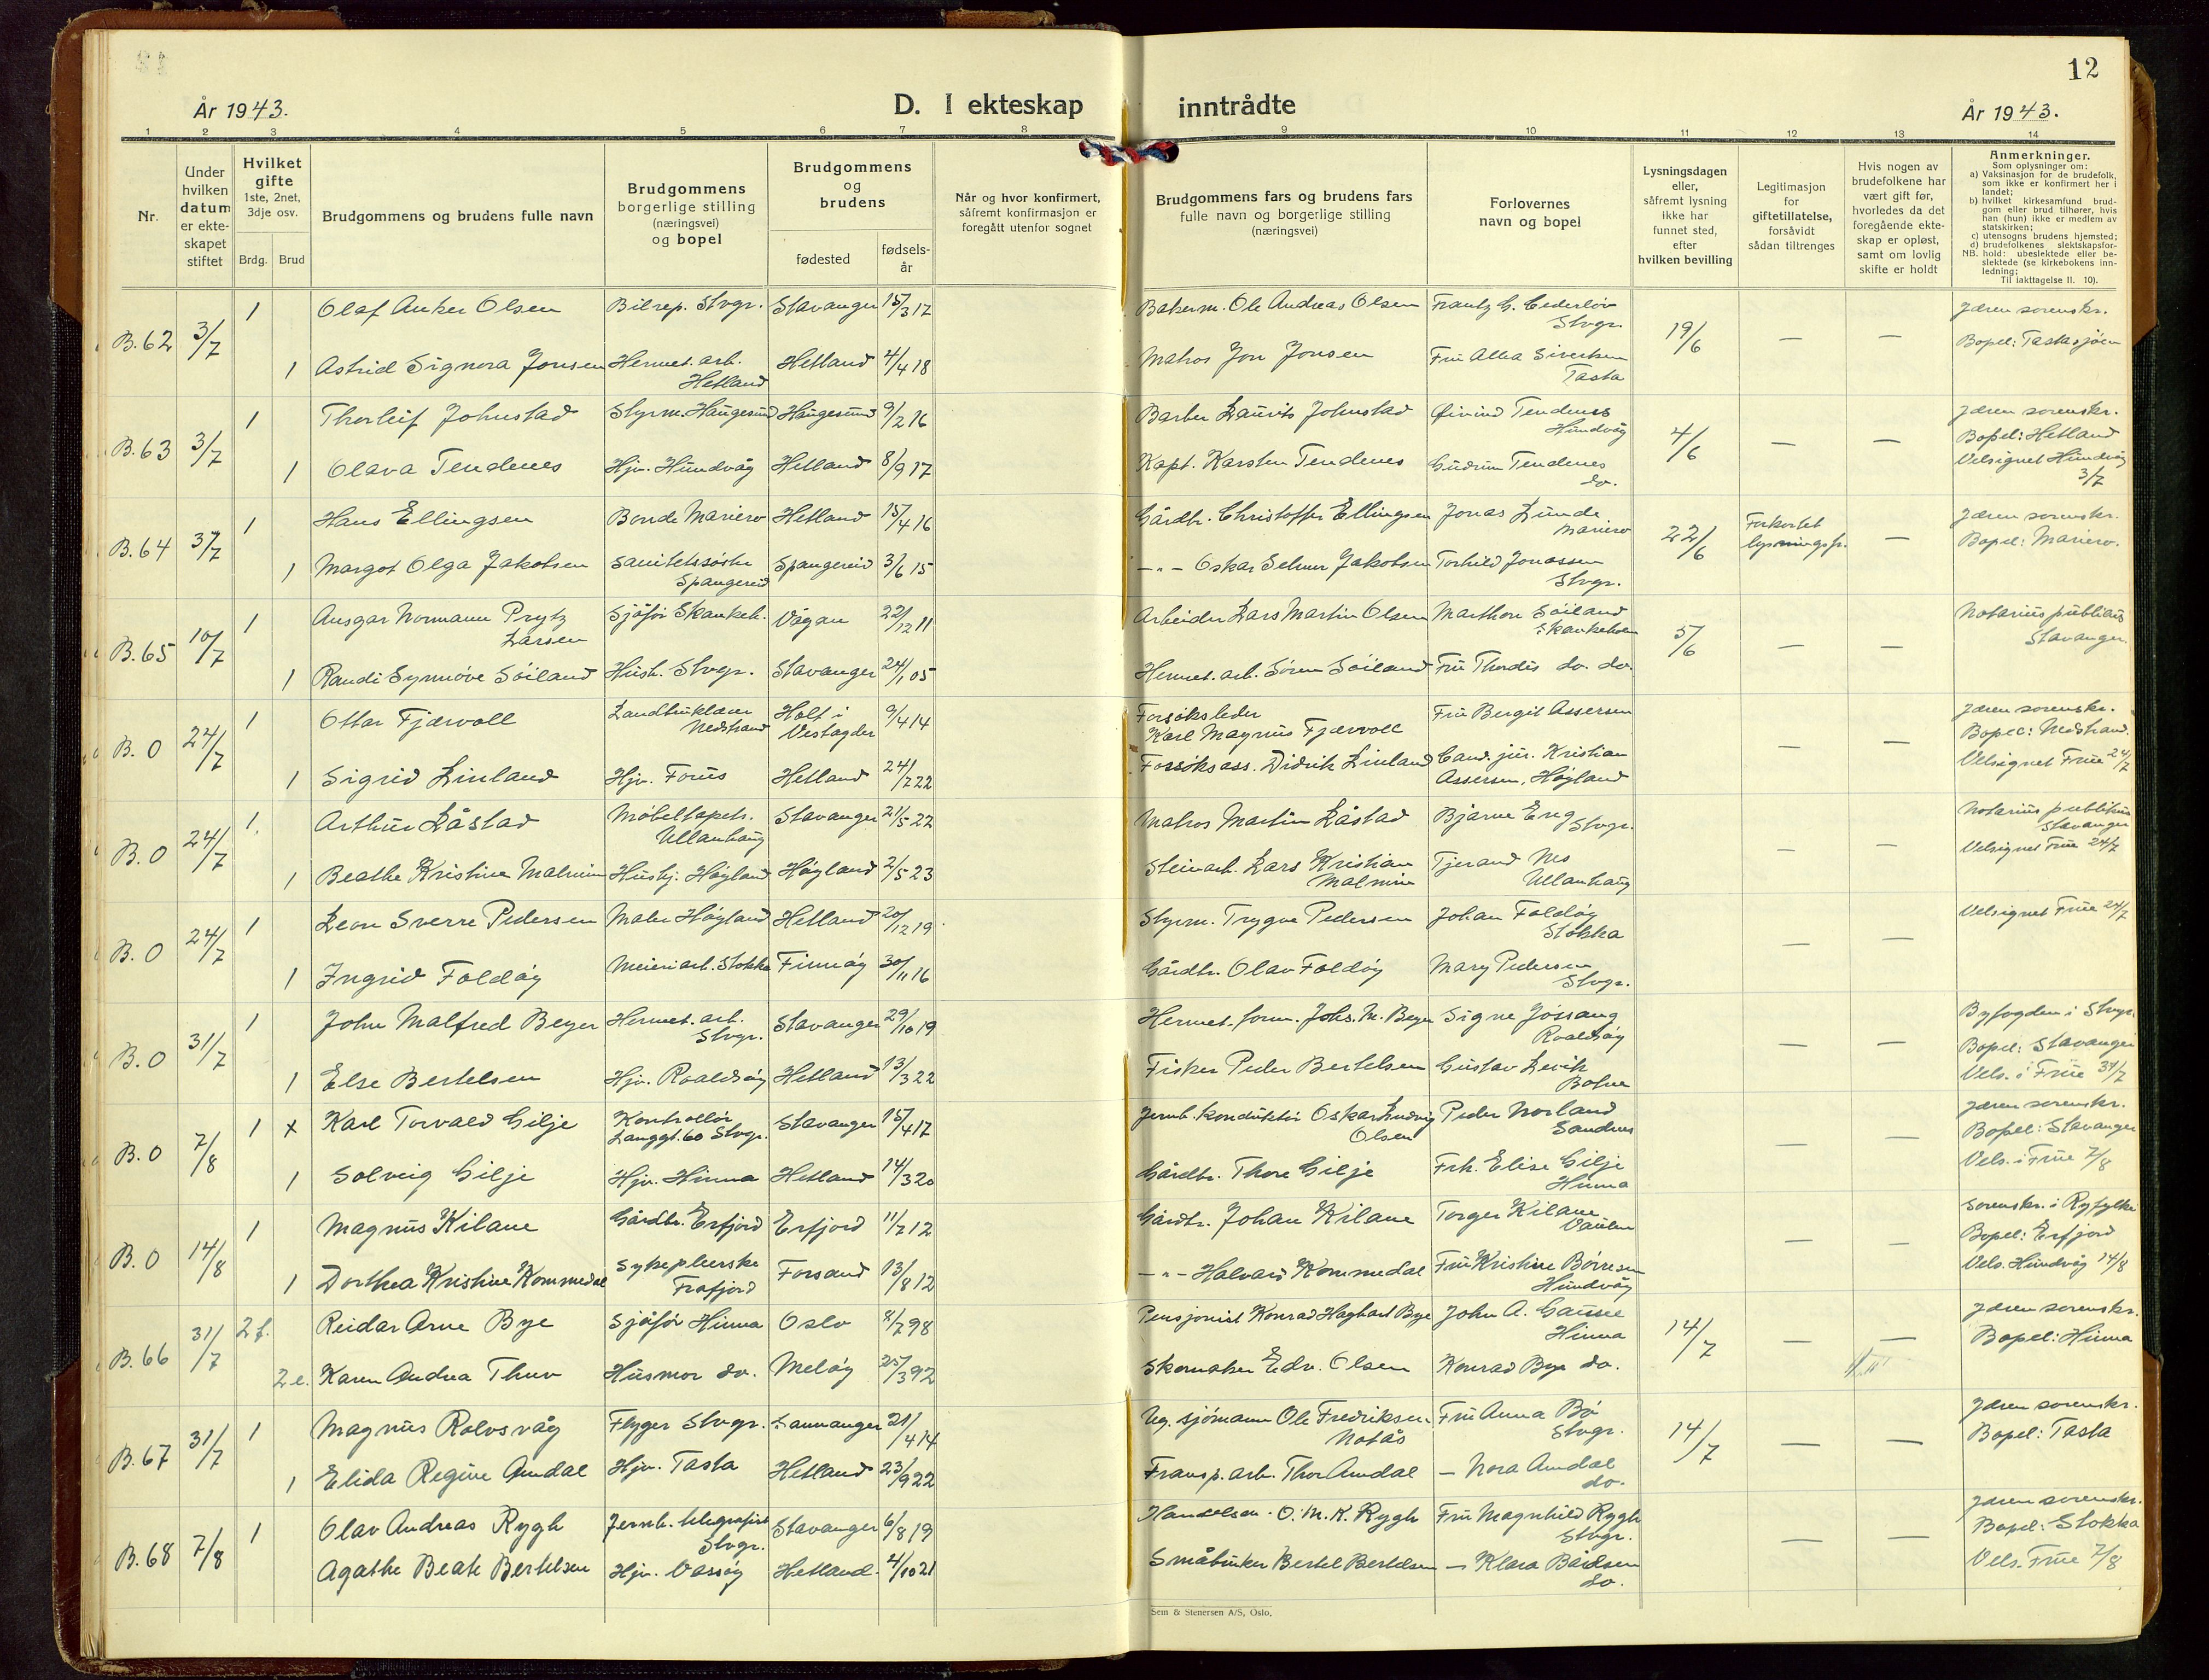 12
År 1943.
D. I ekteskap inntrådte
År 1943.
1 2 3 4 5 6 7 8 9 10 11 12 13 14
Nr.
Under hvilken datum er ekteskapet stiftet
Hvilket gifte 1ste, 2net, 3dje osv.
Brdg. Brud
Brudgommens og brudens fulle navn
Brudgommens borgerlige stilling (næringsvei) og bopel
Brudgommens og brudens
fødested
fødsels-år
Når og hvor konfirmert, såfremt konfirmasjon er foregått utenfor sognet
Brudgommens fars og brudens fars fulle navn og borgerlige stilling (næringsvei)
Forlovernes navn og bopel
Lysningsdagen eller, såfremt lysning ikke har funnet sted, efter hvilken bevilling
Legitimasjon for giftetillatelse, forsåvidt sådan tiltrenges
Hvis nogen av brudefolkene har vært gift før, hvorledes da det foregående ekteskap er opløst, samt om lovlig skifte er holdt
Anmerkninger.
Som oplysninger om:
a) Vaksinasjon for de brudefolk, som ikke er konfirmert her i landet;
b) hvilket kirkesamfund brudgom eller brud tilhører, hvis han (hun) ikke er medlem av statskirken;
c) utensogns brudens hjemsted;
d) brudefolkenes slektskapsforhold: ubeslektede eller beslektede (se kirkebokens innledning;
NB. Til iakttagelse II. 10).
B.62 3/7 1 Olaf Anker Olsen Bilrep. Stvgr. Stavanger 15/3 17 Bakerm. Ole Andreas Olsen Stvgr. 19/6 — — Jæren sorenskr.
Bopel: Tastasjöen
1 Astrid Signora Jonsen Hermet. arb. Hetland Hetland 4/4 18 Matros Jon Jonsen Tasta
B.63 3/7 1 Thorleif Johnstad Styrm. Haugesund Haugesund 9/2 16 Barber Laurits Johnstad Øivind Tendenes Hundvåg 4/6 — — Jæren sorenskr.
Bopel: Hetland
Velsignet Hundvåg 3/7
1 Olava Tendenes Hjv. Hundvåg Hetland 8/9 17 Kapt. Karsten Tendenes Gudrun Tendenes do.
B.64 3/7 1 Hans Ellingsen Bonde Mariero Hetland 15/4 16 Gårdbr. Christoffer Ellingsen Jonas Lunde Mariero 22/6 Forkortet lysningsfr. — Jæren sorenskr.
Bopel: Mariero.
1 Margot Olga Jakobsen Sanitetssöster Spangereid Spangereid 3/6 15 —"— Oskar Selmer Jakobsen Torhild Jonassen Stvgr.
B.65 10/7 1 Ansgar Normann Prytz Larsen Sjåför Skankeh. Vågan 22/12 11 Arbeider Lars Martin Olsen Marthon Söiland Skankeholen 5/6 — — Notarius publicus Stavanger
1 Randi Synnöve Söiland Hush. Stvgr. Stavanger 24/1 05 Hermet. arb. Sören Söiland Fru Thordis do. do.
B. 0 24/7 1 Ottar Fjærvoll Landbruklærer Nedstrand Holt i Vestagder 9/4 14 Forsöksleder Karl Magnus Fjærvoll Fru Bergit Assersen — — Jæren sorenskr.
Bopel: Nedstrand.
Velsignet Frue 24/7
1 Sigrid Linland Hjv. Forus Hetland 24/7 22 Forsöksass. Didrik Linland Cand. jur. Kristian Assersen, Høyland
B. 0 24/7 1 Arthur Låstad Möbeltapets. Ullanhaug Stavanger 21/5 22 Matros Martin Låstad Bjarne Eng Stvgr. — — Notarius publikus Stavanger
Velsignet Frue 24/7
1 Beathe Kristine Malmin Hushj. Høyland Høyland 2/5 23 Steinarb. Lars Kristian Malmin Tjerand Nes Ullanhaug
B. 0 24/7 1 Leon Sverre Pedersen Maler Høyland Hetland 20/12 19 Styrm. Trygve Pedersen Johan Foldöy Stokka — — Velsignet Frue 24/7
1 Ingrid Foldöy Meieriarb. Stokka Finnöy 30/11 16 Gårdbr. Olav Foldöy Mary Pedersen Stvgr.
B. 0 31/7 1 John Malfred Beyer Hermet. arb. Stvgr. Stavanger 29/10 19 Hermet. form. Johs. M. Beyer Signe Jössang Roaldsöy — — Byfogden i Stvgr.
Bopel: Stavanger
Vels. i Frue 31/7
1 Else Bertelsen Hjv. Roaldsöy Hetland 13/3 22 Fisker Peder Bertelsen Gustav
B. 0 7/8 1 x Karl Torvald Gilje Kontrollör Langgt. 60 Stvgr. Stavanger 15/4 17 Jernb. konduktör Oskar Ludvig Olsen Peder Norland Sandnes — — Jæren sorenskr.
Bopel: Stavanger
Vels. i Frue 7/8
1 Solveig Gilje Hjv. Hinna Hetland 14/3 20 Gårdbr. Thore Gilje Frk. Elise Gilje Hinna
B. 0 14/8 1 Magnus Kilane Gårdbr. Erfjord Erfjord 11/7 12 Gårdbr. Johan Kilane Torger Kilane Vaulen — — Sorenskr. i Ryfylke
Bopel: Erfjord
Vels. Hundvåg 14/8
1 Dorthea Kristine Kommedal Sykepleierske Frafjord Forsand 13/8 12 —"— Halvard Kommedal Fru Kristine Börresen Hundvåg
B.66 31/7 2 f. Reidar Arne Bye Sjåför Hinna Oslo 8/7 98 Pensjonist Konrad Hagbart Bye John A. Gausel Hinna 14/7 — — Jæren sorenskr.
Bopel: Hinna
2 e. Karen Andrea Thuv Husmor do. Melöy 25/3 92 Skomaker Edv. Olsen Konrad Bye do.
B.67 31/7 1 Magnus Rolvsvåg Flyger Stvgr. Sannanger 21/4 14 Ug. sjömann Ole Fredriksen Notås Fru Anna Bö Stvgr. 14/7 — — Jæren sorenskr.
Bopel: Tasta
1 Elida Regine Amdal Hjv. Tasta Hetland 23/9 22 Transp. arb. Thor Amdal — Nora Amdal do.
B.68 7/8 1 Olav Andreas Rygh Jernb. telegrafist Stvgr. Stavanger 6/8 19 Handelsm. O. M. K. Rygh Fru Magnhild Rygh Stvgr. — — Jæren sorenskr.
Bopel: Stokka
Vels. Frue 7/8
1 Agathe Beate Bertelsen Hjv. Vassöy Hetland. 4/10 21 Småbruker Bertel Bertelsen — Klara Bårdsen do.
Sem & Stenersen A/S, Oslo.